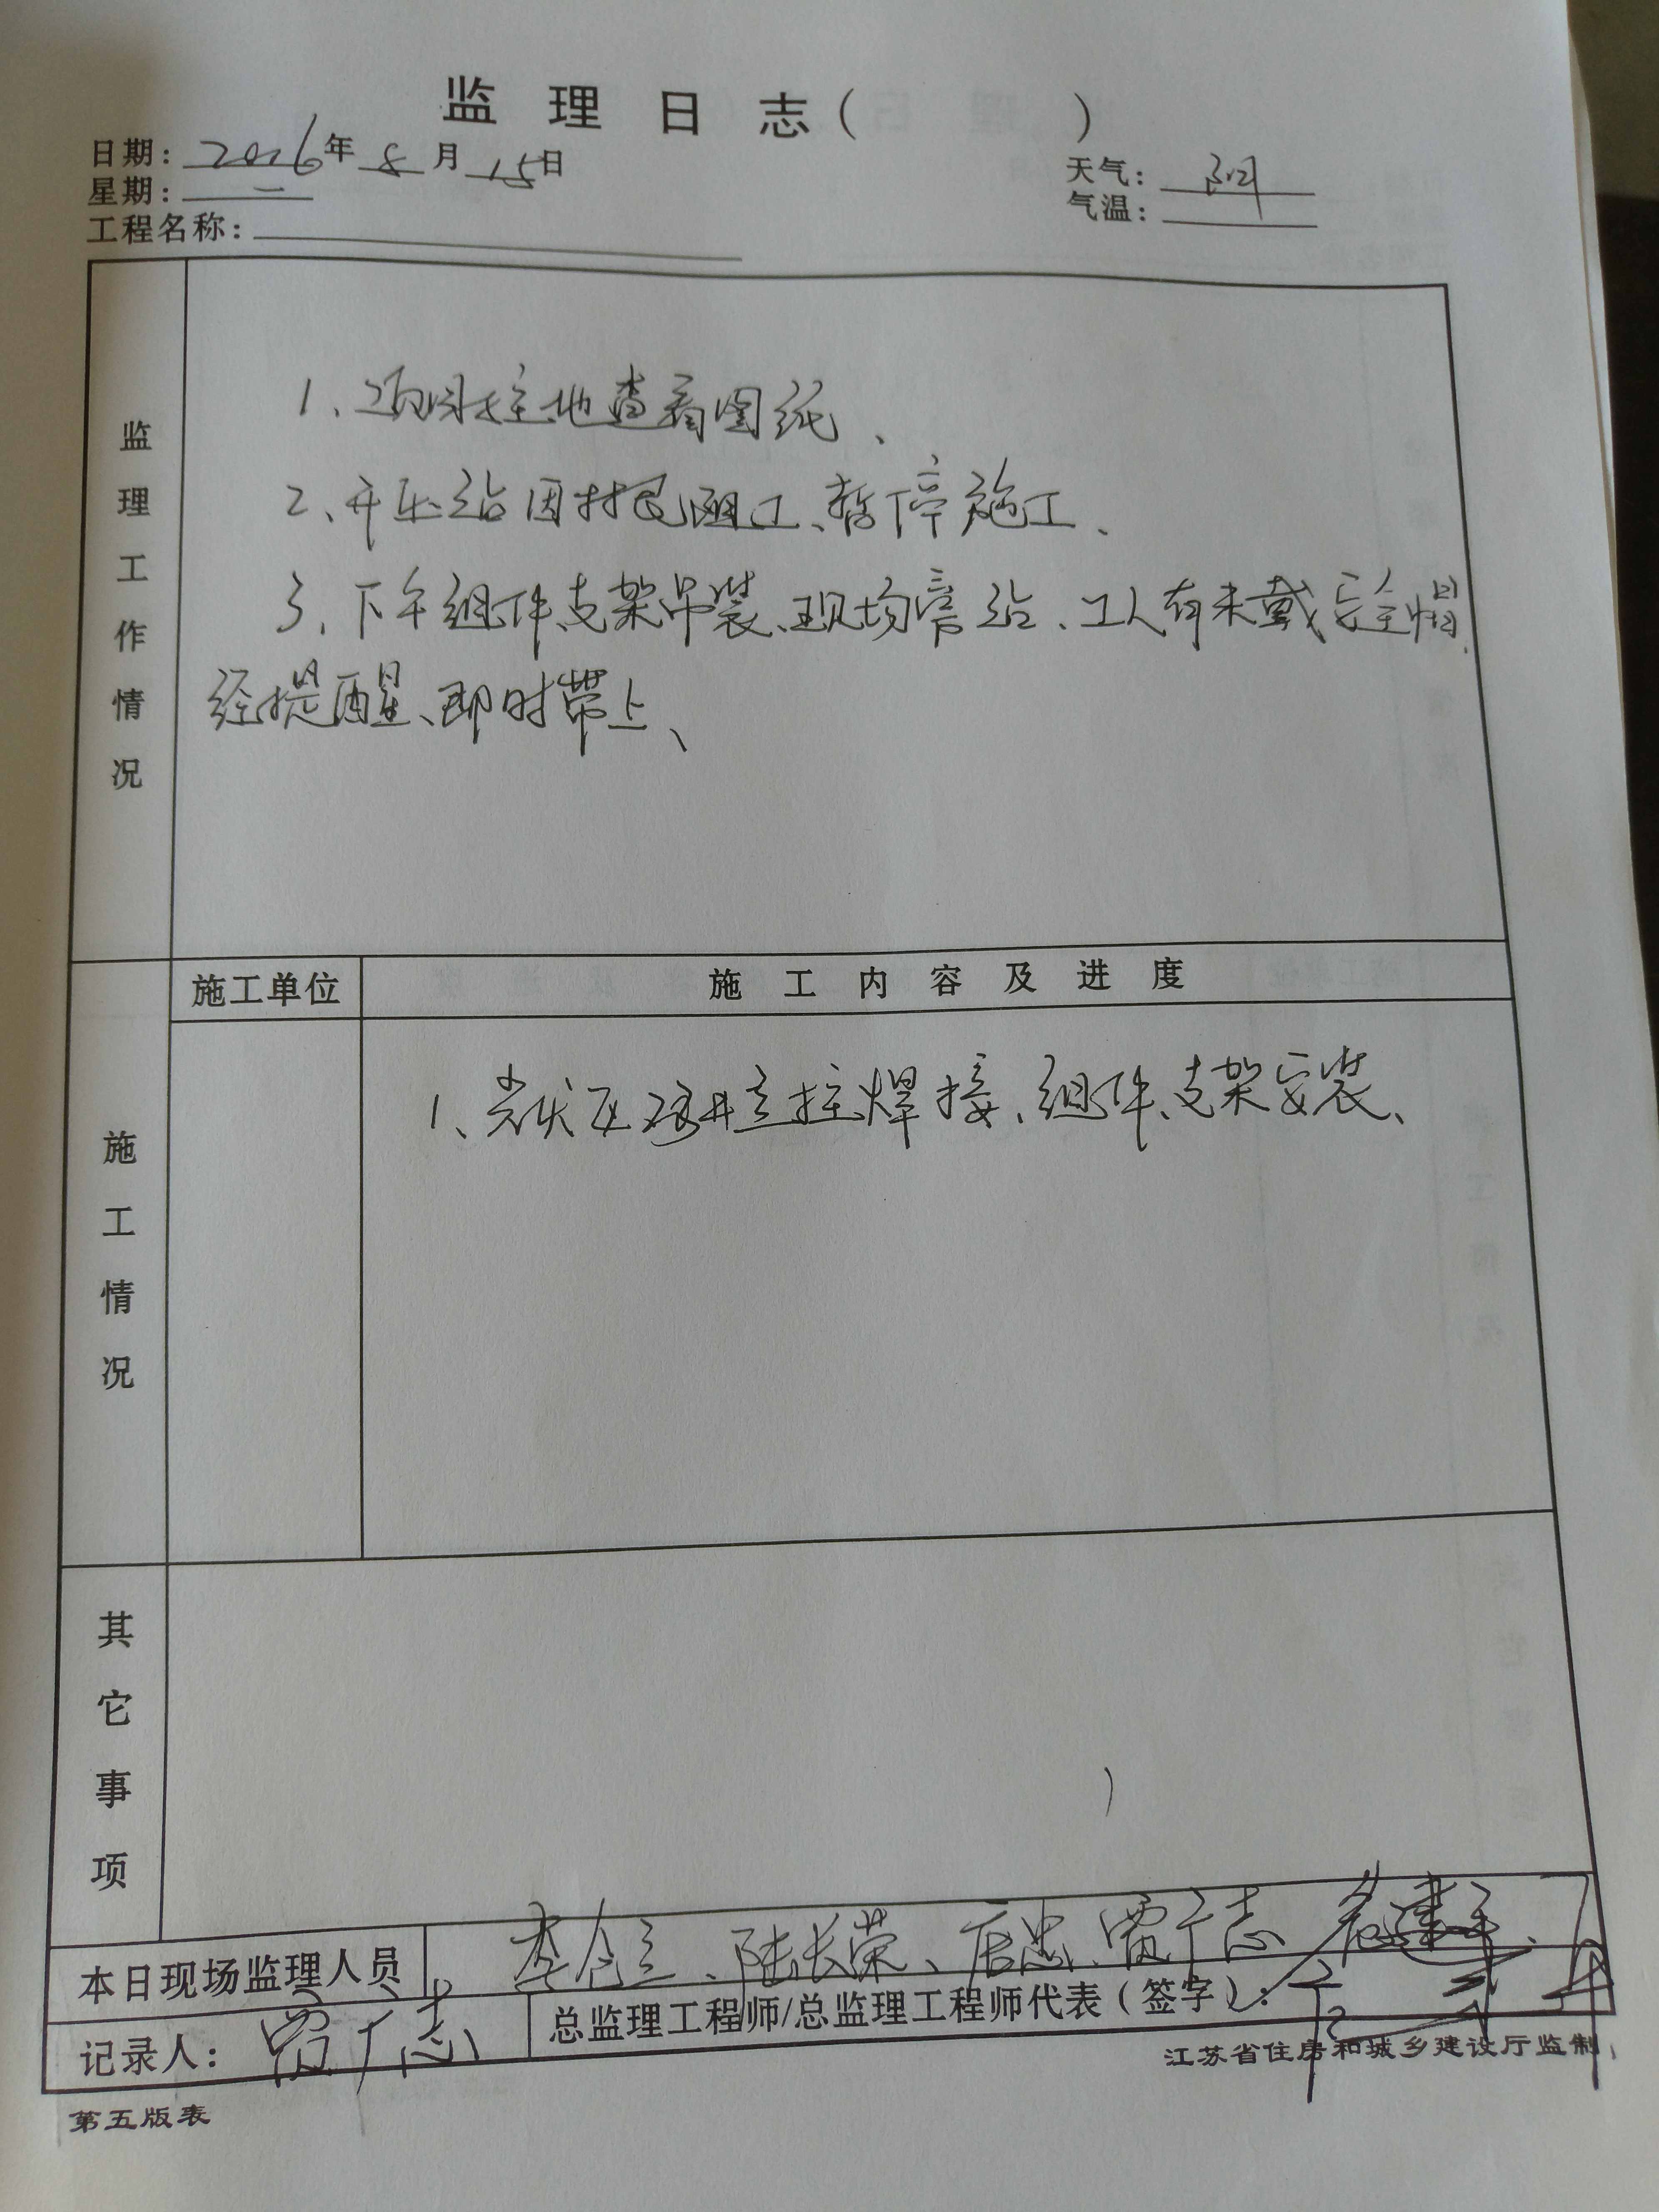 监理日志（ ）
日期：2016年8月15日
天气：阴
星期：一
气温：
工程名称：
监理工作情况
1、项目驻地查看图纸、
2、升压站因村民阻工、暂停施工、
3、下午组件支架吊装、现场旁站、工人有未戴安全帽、
经提醒、即时带上、
施工单位
施工内容及进度
施工情况
1、光伏区 立柱焊接、组件支架安装、
其它事项
本日现场监理人员
陆长荣、
记录人：
总监理工程师/总监理工程师代表（签字）：
江苏省住房和城乡建设厅监制
第五版表